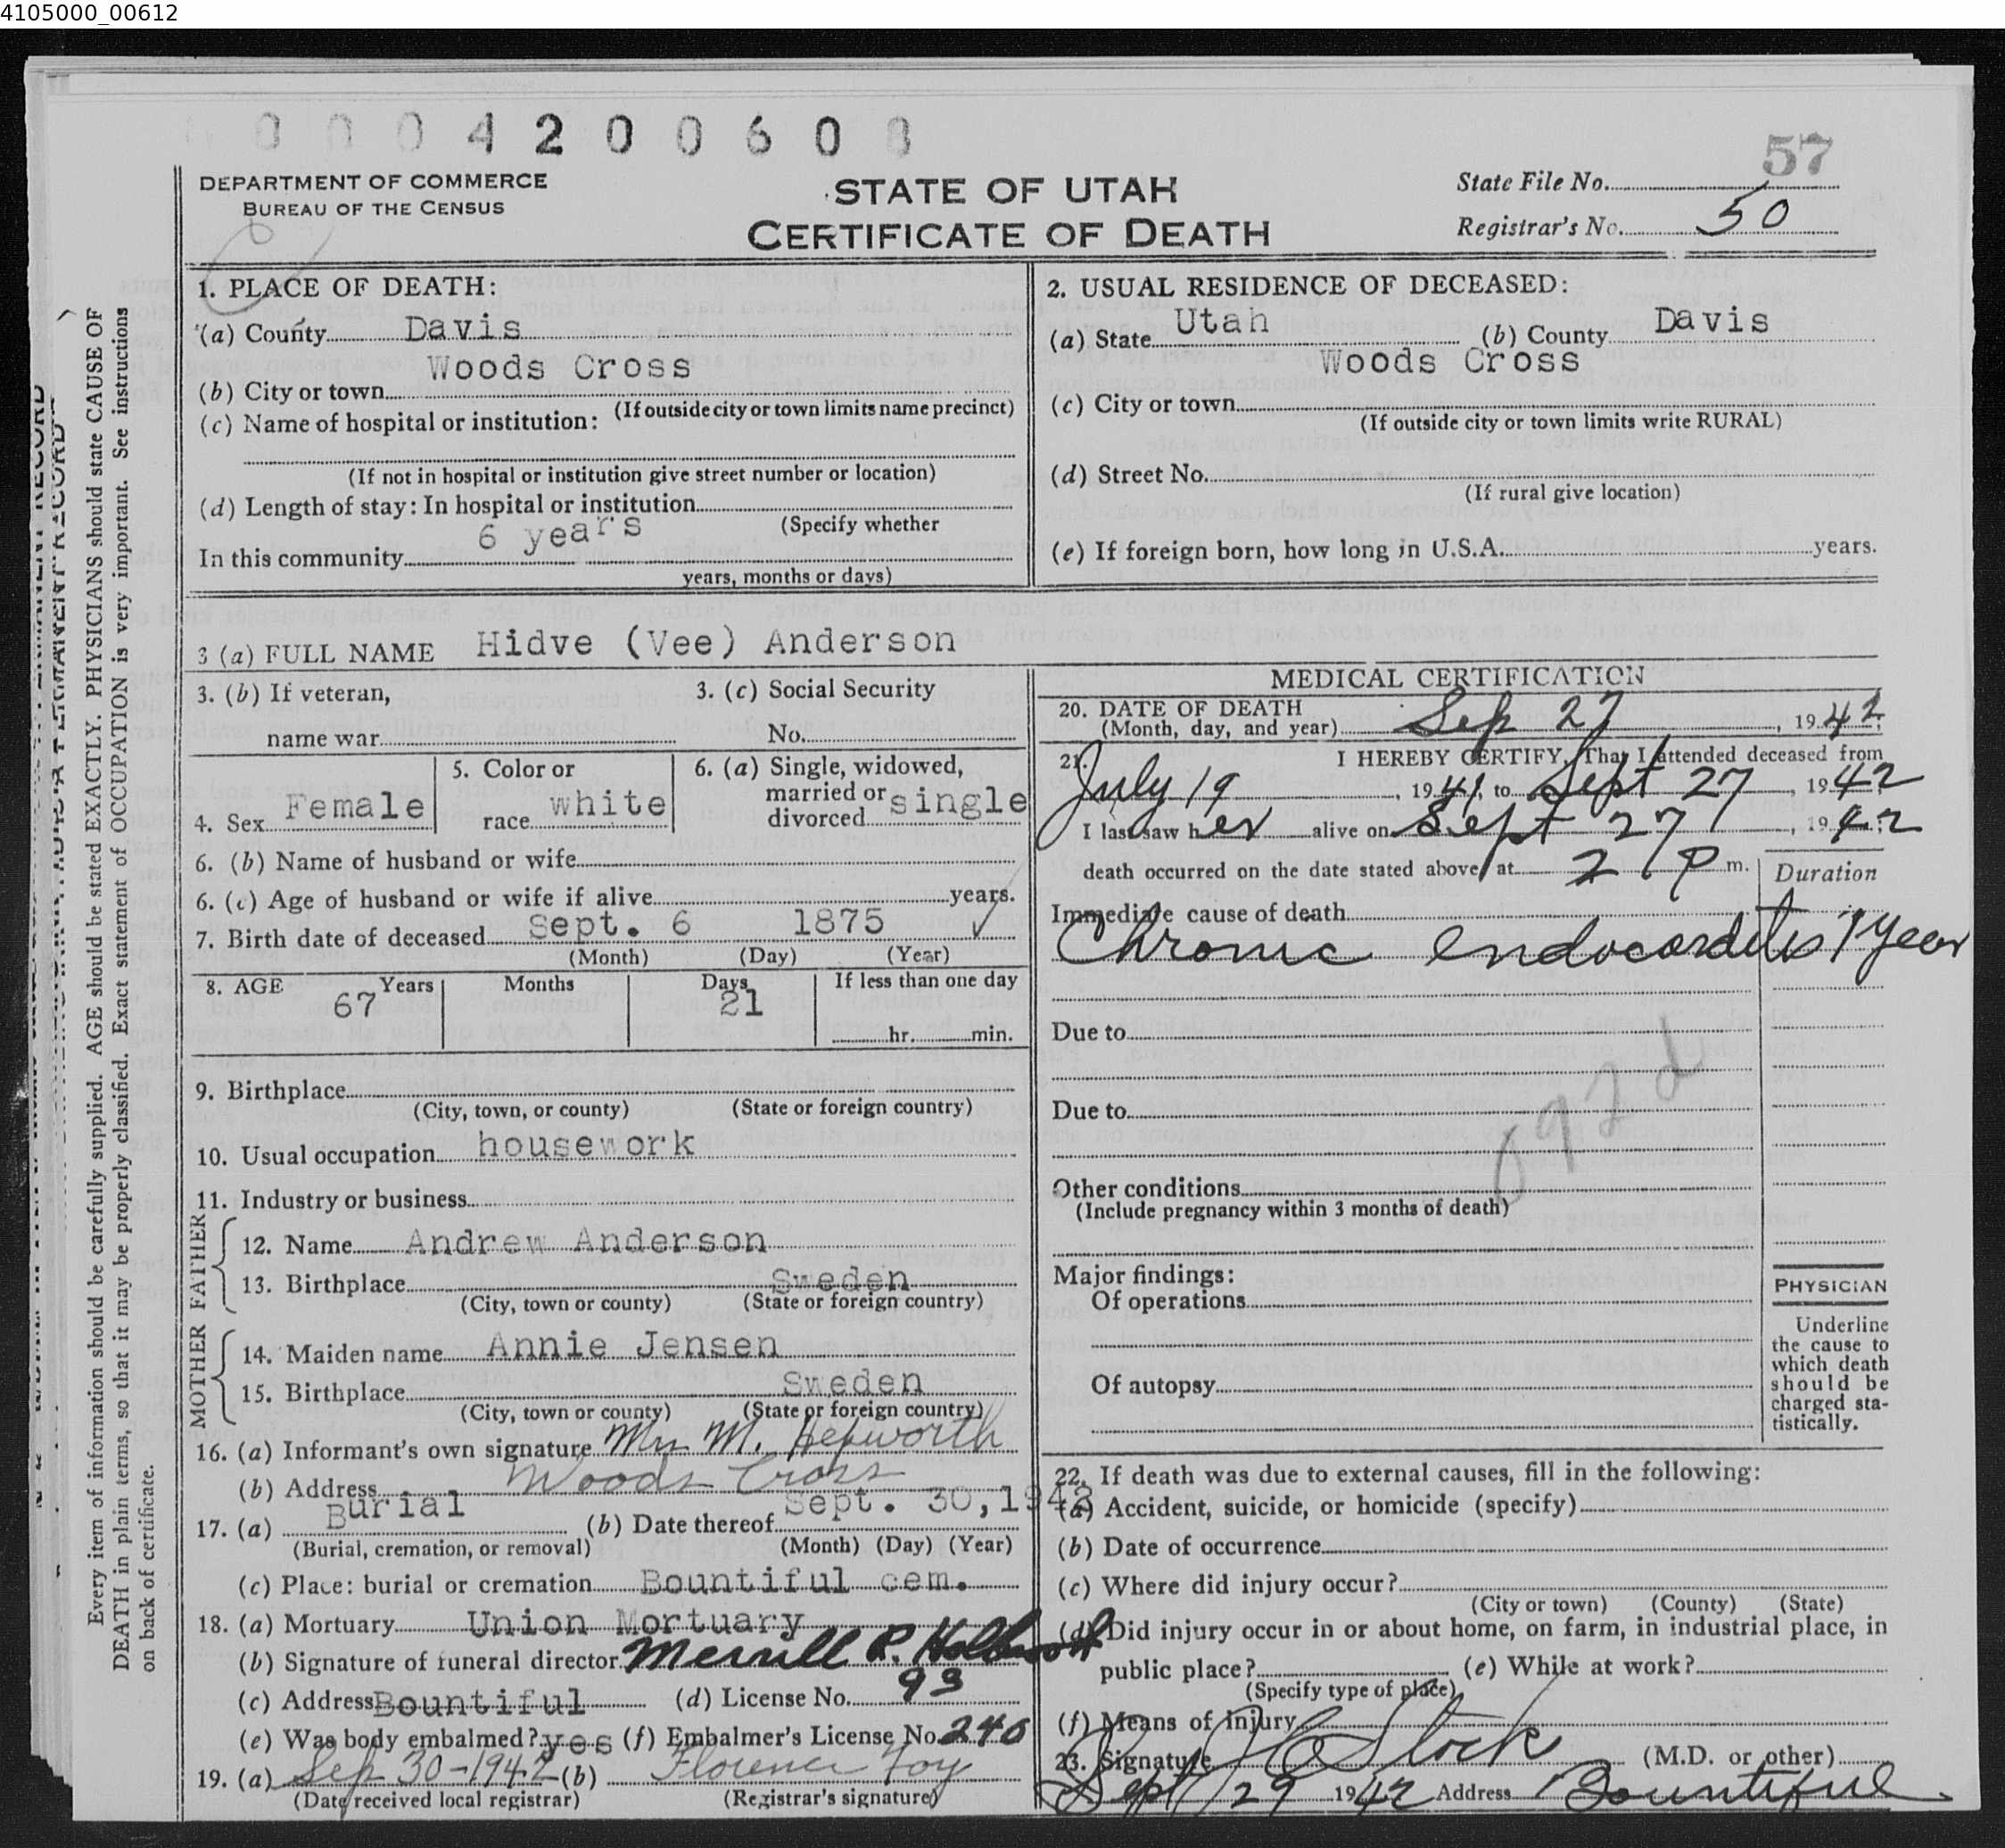 4105000_00612
0 0 0 4 2 0 0 6 0 8
57
DEPARTMENT OF COMMERCE
BUREAU OF THE CENSUS
STATE OF UTAH
CERTIFICATE OF DEATH
State File No.
Registrar's No. 50
Every item of information should be carefully supplied. AGE should be stated EXACTLY. PHYSICIANS should state CAUSE OF
DEATH in plain terms, so that it may be properly classified. Exact statement of OCCUPATION is very important. See instructions
on back of certificate.
1. PLACE OF DEATH:
(a) County Davis
(b) City or town Woods Cross
(If outside city or town limits name precinct)
(c) Name of hospital or institution:
(If not in hospital or institution give street number or location)
(d) Length of stay: In hospital or institution
(Specify whether
In this community 6 years
years, months or days)
2. USUAL RESIDENCE OF DECEASED:
(a) State Utah (b) County Davis
(c) City or town Woods Cross
(If outside city or town limits write RURAL)
(d) Street No.
(If rural give location)
(e) If foreign born, how long in U.S.A. years.
3 (a) FULL NAME Hidve (Vee) Anderson
3. (b) If veteran,
name war
3. (c) Social Security
No.
4. Sex Female
5. Color or
race white
6. (a) Single, widowed,
married or
divorced single
6. (b) Name of husband or wife
6. (c) Age of husband or wife if alive years.
7. Birth date of deceased Sept. 6 1875 ✓
(Month) (Day) (Year)
8. AGE Years Months Days If less than one day
67 21
hr. min.
9. Birthplace
(City, town, or county) (State or foreign country)
10. Usual occupation housework
11. Industry or business
FATHER
12. Name Andrew Anderson
13. Birthplace Sweden
(City, town or county) (State or foreign country)
MOTHER
14. Maiden name Annie Jensen
15. Birthplace Sweden
(City, town or county) (State or foreign country)
16. (a) Informant's own signature Mrs M. Hepworth
(b) Address Woods Cross
17. (a) Burial (b) Date thereof Sept. 30, 1942
(Burial, cremation, or removal) (Month) (Day) (Year)
(c) Place: burial or cremation Bountiful cem.
18. (a) Mortuary Union Mortuary
(b) Signature of funeral director Merrill R. Holbrook
(c) Address Bountiful (d) License No. 93
(e) Was body embalmed? yes (f) Embalmer's License No. 240
19. (a) Sep 30-1942 (b) Florence Foy
(Date received local registrar) (Registrar's signature)
MEDICAL CERTIFICATION
20. DATE OF DEATH
(Month, day, and year) Sep 27, 1942
21. I HEREBY CERTIFY, That I attended deceased from
July 19, 1941, to Sept 27, 1942
I last saw her alive on Sept 27, 1942
death occurred on the date stated above, at 2 P m.
Duration
Immediate cause of death
Chronic endocarditis 1 year
Due to
Due to
092d
Other conditions
(Include pregnancy within 3 months of death)
Major findings:
Of operations
Of autopsy
PHYSICIAN
Underline
the cause to
which death
should be
charged sta-
tistically.
22. If death was due to external causes, fill in the following:
(a) Accident, suicide, or homicide (specify)
(b) Date of occurrence
(c) Where did injury occur?
(City or town) (County) (State)
(d) Did injury occur in or about home, on farm, in industrial place, in
public place? (e) While at work?
(Specify type of place)
(f) Means of injury
23. Signature Stock (M.D. or other)
Sept 29 1942 Address Bountiful